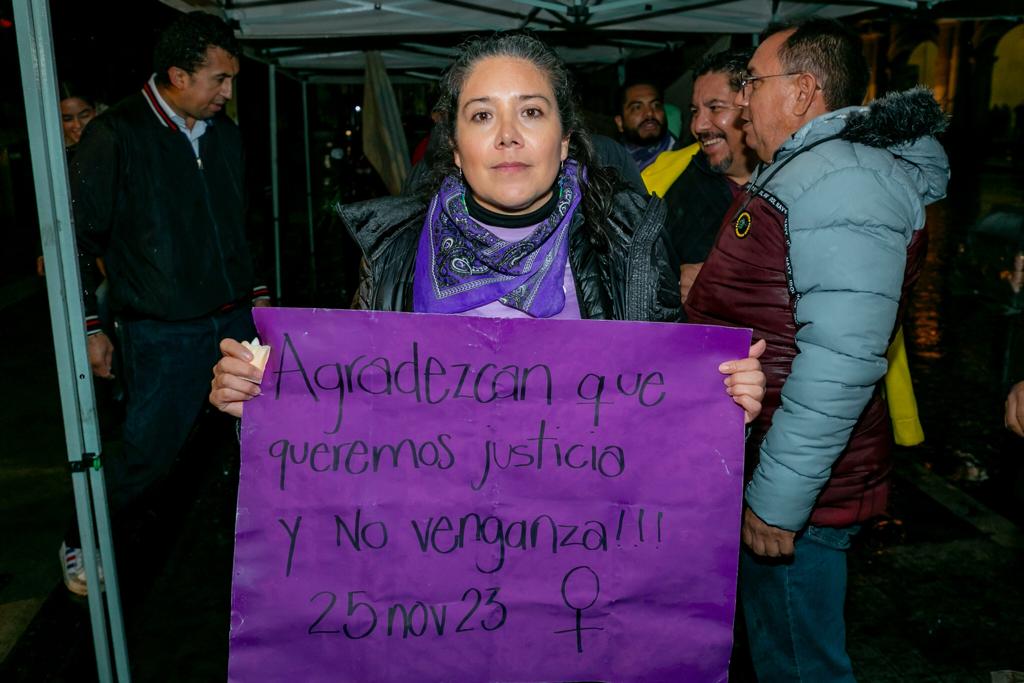 Agradezcan que
queremos justicia
y No venganza!!!
25 nov 23 ♀